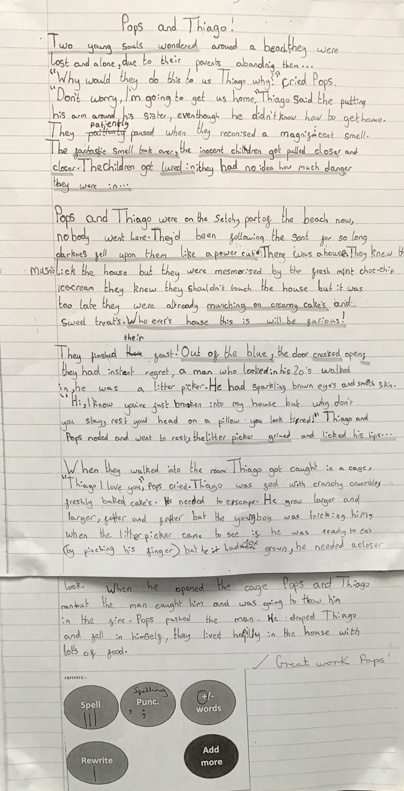 Pops and Thiago!
Two young souls wondered around a beach they were
lost and alone, due to their parents abandoning them...
"Why would they do this to us Thiago why?" cried Pops.
"Don't worry, I'm going to get us home," Thiago said the putting
his arm around his sister, eventhough he didn't know how to get home.
patiently
They paused when they reconised a magnificent smell.
The fantastic smell took over, the inocent children got pulled closer and
closer. The children got lured in; they had no idea how much danger
they were in...
Pops and Thiago were on the setchy part of the beach now,
nobody went here. They'd been following the sent for so long
darknes fell upon them like a power cut. There was a house. They knew
musn't lick the house but they were mesmerised by the fresh mint choc-chip
icecream they knew they shouldn't touch the house but it was
too late they were already munching on creamy cakes and
sweet treats. Who ever's house this is will be furious!
their
They finished feast! Out of the blue, the door creeked open;
they had instant regret, a man who looked in his 20's walked
in, he was a litter picker. He had sparkling brown eyes and smooth skin.
"Hi, I know you've just broken into my house but why don't
you stay, rest you head on a pillow you look tiered!" Thiago and
Pops noded and went to rest, the litter picker grined and licked his lips...
When they walked into the room Thiago got caught in a cage,
"Thiago I love you," Pops cried. Thiago was fed with crunchy
freshly baked cake's. He needed to escape. He grew larger and
larger, fatter and fatter but the young boy was tricking him,
when the litter picker came to see if he was ready to eat
(by pinching his finger) but he hadn't grown, he needed a closer
look. When he opened the cage Pops and Thiago
ran but the man caught him and was going to thow him
in the fire. Pops pushed the man. He droped Thiago
and fell in himself, they lived happily in the house with
lots of food.
✓ Great work Pops!
Spell
Spelling
Punc.
+/-
words
Rewrite
Add
more